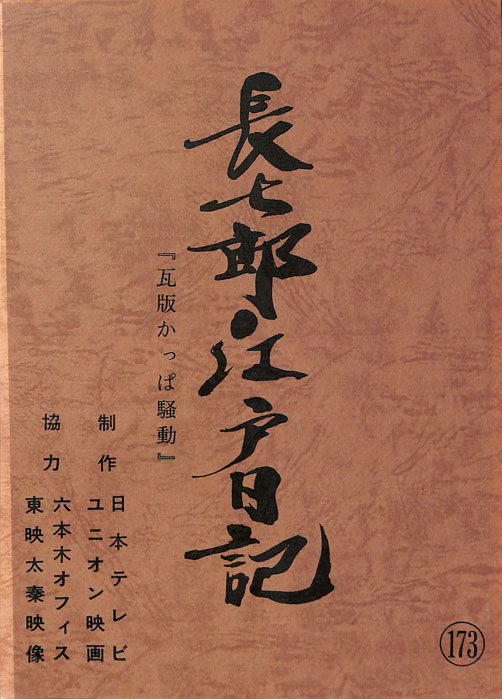 長七郎江戸日記
『瓦版かっぱ騒動』
制作
日本テレビ
ユニオン映画
協力
六本木オフィス
東映太秦映像
173